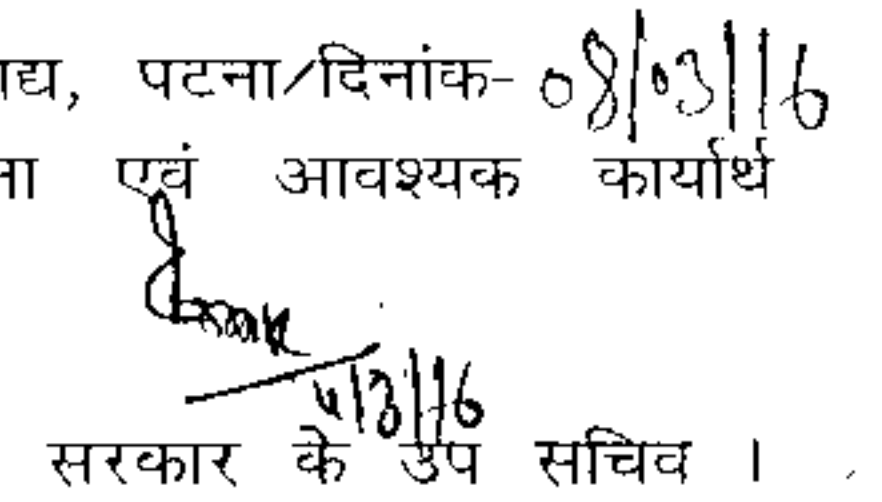 द्य, पटना/दिनांक- 08/03/16
ना एवं आवश्यक कार्यार्थ
4/3/16
सरकार के उप सचिव ।